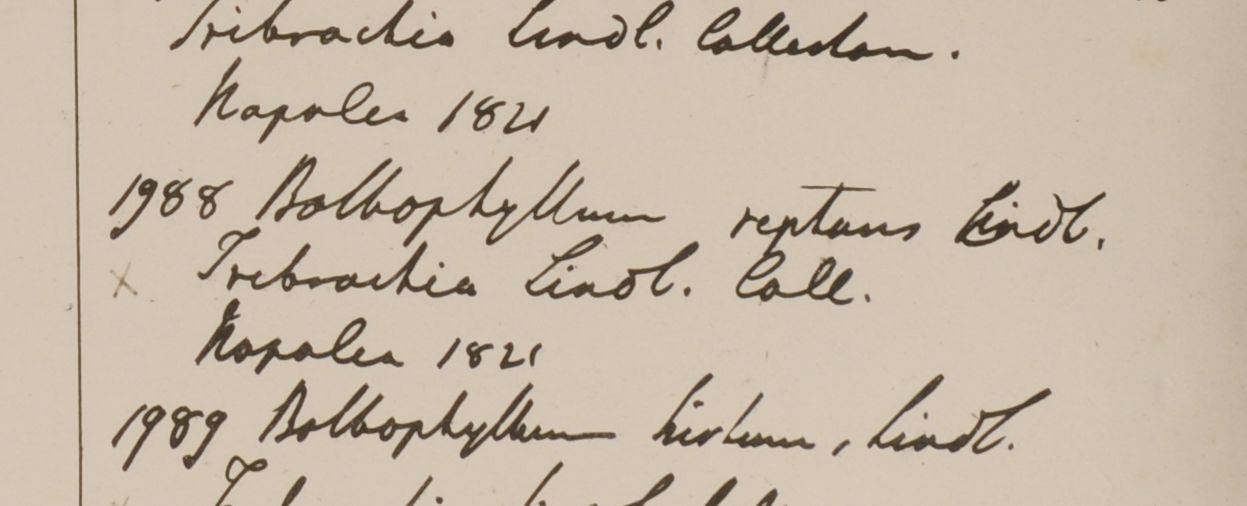 Tribrachia Lindl. Collection.
Napalea 1821
1988 Bolbophyllum reptans Lindl.
x Tribrachia Lindl. Coll.
Napalea 1821
1989 Bolbophyllum hirtum, Lindl.